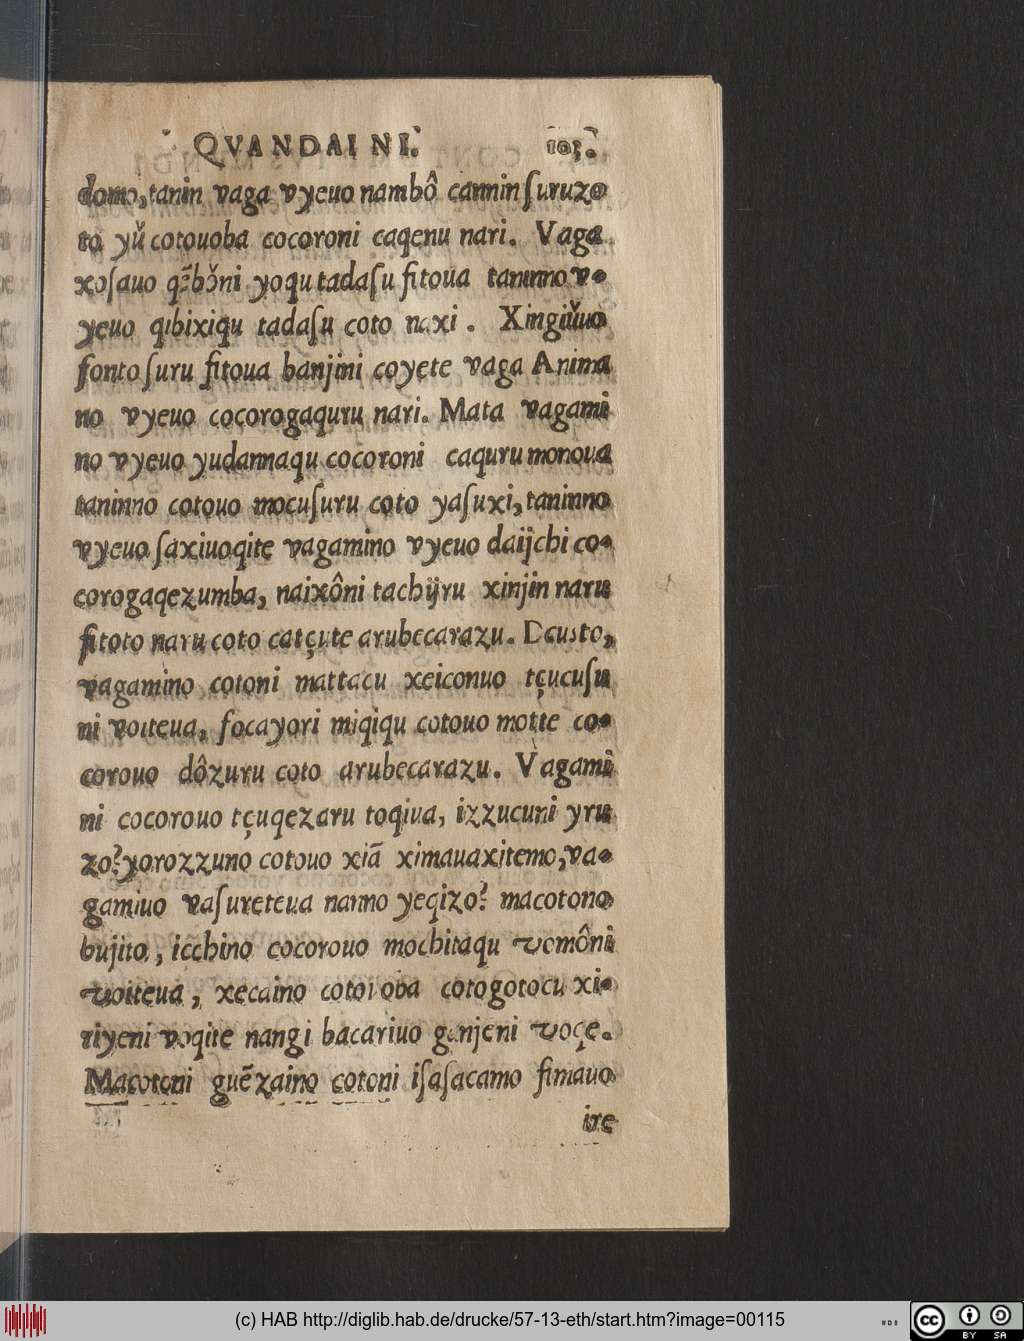 QVANDAI NI.
103.
domo, tanin vaga vyeuo nambô canninſuruzo
to yǔ cotouoba cocoroni caqenu nari. Vaga
xoſauo qẽbǒni yoqu tadaſu fitoua taninno v-
yeuo qibixiqu tadaſu coto naxi. Xingiǔuo
fonto ſuru fitoua banjini coyete vaga Anima
no vyeuo cocorogaquru nari. Mata vagami
no vyeuo yudannaqu cocoroni caquru monoua
taninno cotouo mocuſuru coto yaſuxi, taninno
vyeuo ſaxiuoqite vagamino vyeuo daijchi co-
corogaqezumba, naixôni tachijru xinjin naru
fitoto naru coto catçute arubecarazu. Deusto,
vagamino cotoni mattacu xeiconuo tçucuſu
ni voiteua, focayori miqiqu cotouo motte co-
corouo dôzuru coto arubecarazu. Vagami
ni cocorouo tçuqezaru toqiua, izzucuni yru
zo? yorozzuno cotouo xiã ximauaxitemo, va-
gamiuo vaſureteua nanno yeqizo? macotono
bujito, icchino cocorouo mochitaqu vomôni
voiteua, xecaino cotoroba cotogotocu xi-
riyeni voqite nangi bacariuo ganjeni voqe.
Macotoni guẽzaino cotoni iſaſacamo fimauo
ire
(c) HAB http://diglib.hab.de/drucke/57-13-eth/start.htm?image=00115
cc BY SA